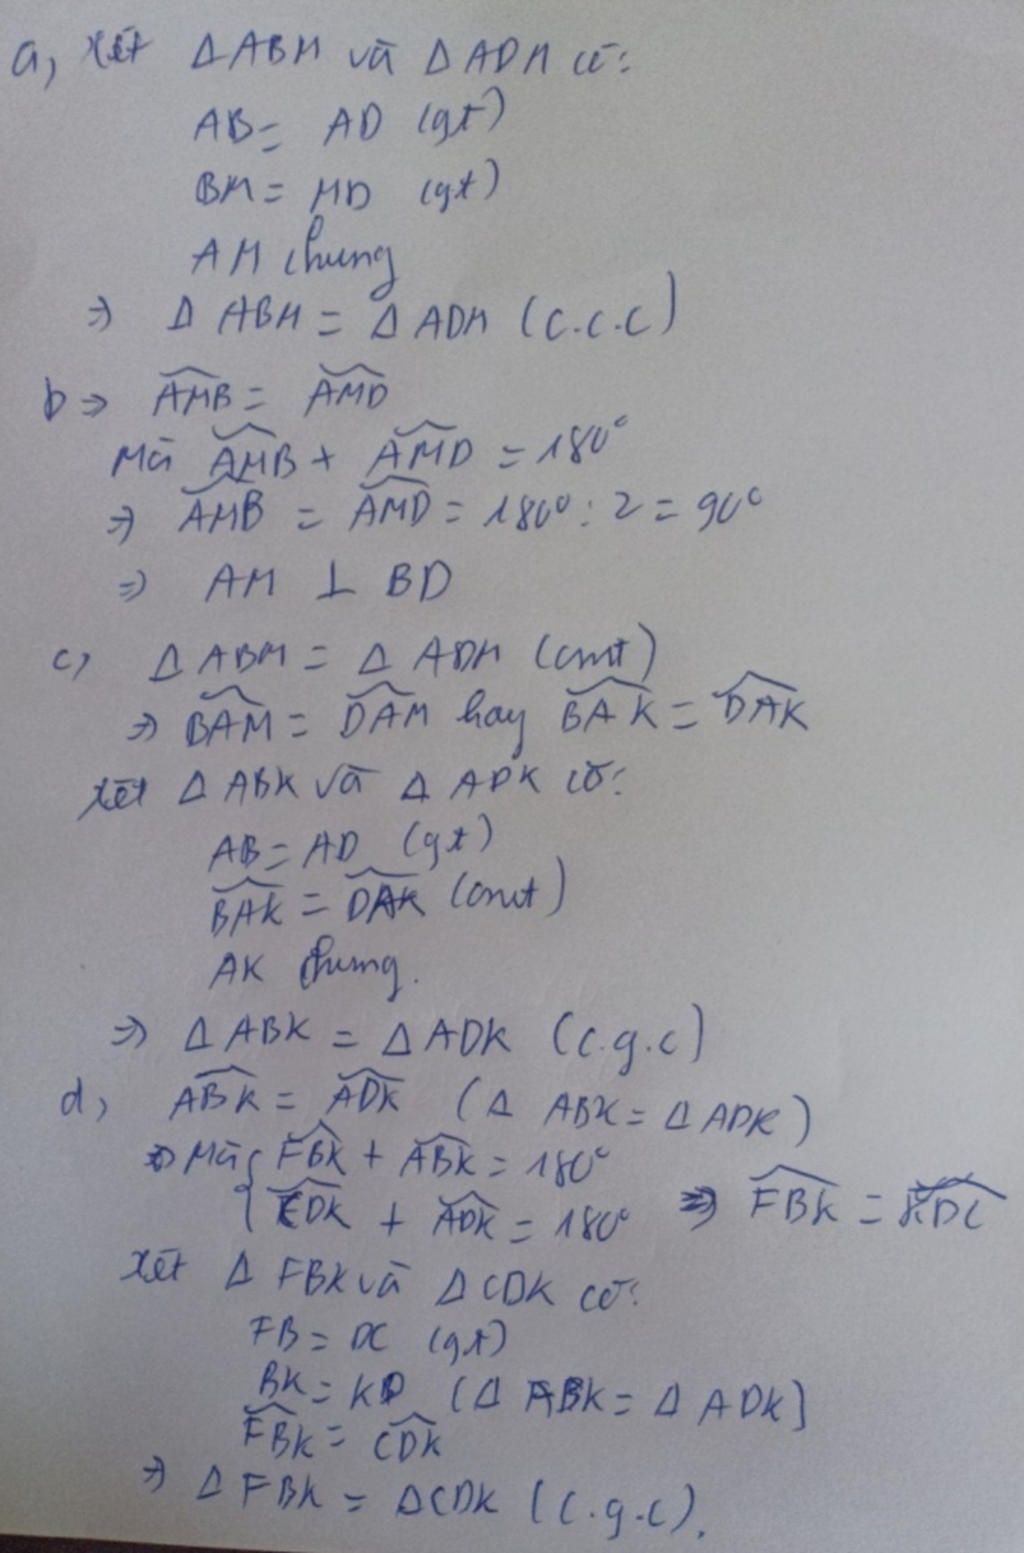 a, Xét ΔABM và ΔADM có:
AB = AD (gt)
BM = MD (gt)
AM chung
⇒ ΔABM = ΔADM (c.c.c)
b ⇒ \widehat{AMB} = \widehat{AMD}
Mà \widehat{AMB} + \widehat{AMD} = 180°
⇒ \widehat{AMB} = \widehat{AMD} = 180° : 2 = 90°
⇒ AM ⊥ BD
c, ΔABM = ΔADM (cmt)
⇒ \widehat{BAM} = \widehat{DAM} hay \widehat{BAK} = \widehat{DAK}
Xét ΔABK và ΔADK có:
AB = AD (gt)
\widehat{BAK} = \widehat{DAK} (cmt)
AK chung.
⇒ ΔABK = ΔADK (c.g.c)
d, \widehat{ABK} = \widehat{ADK} (ΔABK = ΔADK)
Mà { \widehat{FBK} + \widehat{ABK} = 180°
\widehat{CDK} + \widehat{ADK} = 180° ⇒ \widehat{FBK} = \widehat{KDC}
Xét ΔFBK và ΔCDK có:
FB = DC (gt)
BK = KD (ΔABK = ΔADK)
\widehat{FBK} = \widehat{CDK}
⇒ ΔFBK = ΔCDK (c.g.c).